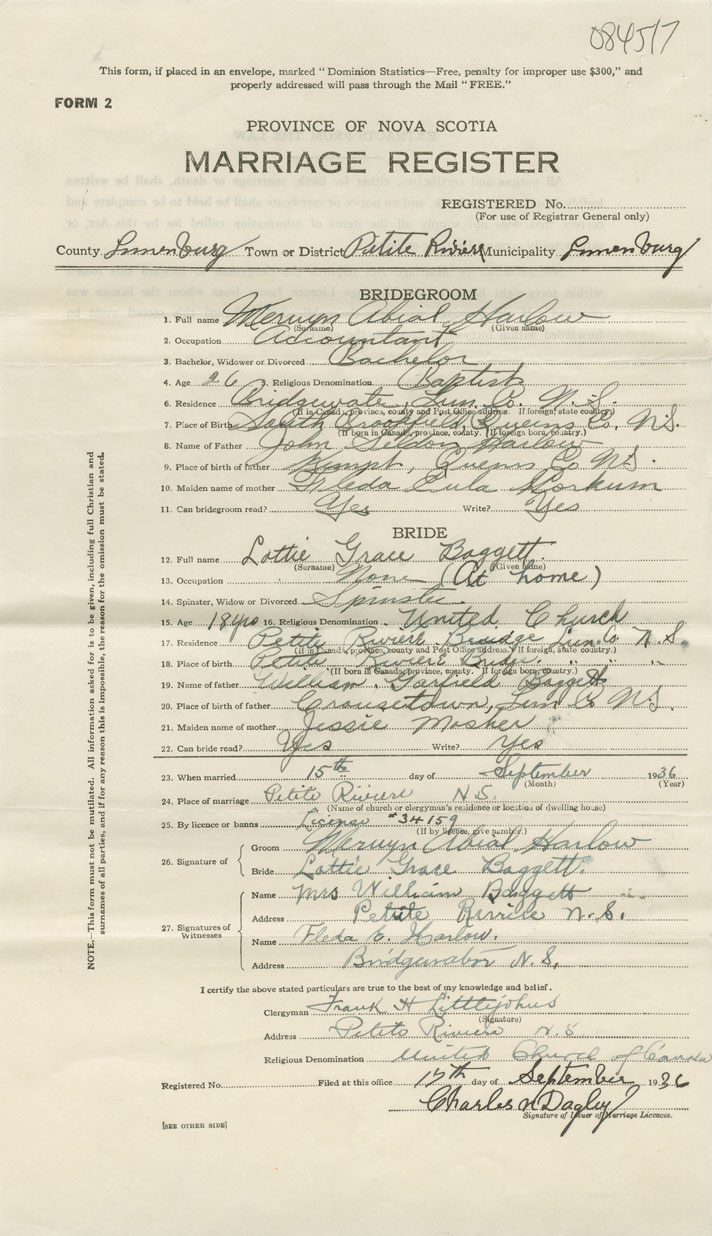 084517
This form, if placed in an envelope, marked "Dominion Statistics—Free, penalty for improper use $300," and
properly addressed will pass through the Mail "FREE."
FORM 2
PROVINCE OF NOVA SCOTIA
MARRIAGE REGISTER
REGISTERED No.
(For use of Registrar General only)
County Lunenburg Town or District Petite Riviere Municipality Lunenburg
BRIDEGROOM
1. Full name Mervyn Abial Harlow
(Surname) (Given name)
2. Occupation Accountant
3. Bachelor, Widower or Divorced Bachelor
4. Age 26 5. Religious Denomination Baptist
6. Residence Bridgewater, Lun. Co. N.S.
(If in Canada, province, county and Post Office address. If foreign, state country.)
7. Place of Birth South Brookfield, Queens Co. N.S.
(If born in Canada, province, county. If foreign born, country.)
8. Name of Father John Harlow
9. Place of birth of father Kempt, Queens Co N.S.
10. Maiden name of mother Fleda Eula Corkum
11. Can bridegroom read? Yes Write? Yes
BRIDE
12. Full name Lottie Grace Baggett
(Surname) (Given name)
13. Occupation None (At home)
14. Spinster, Widow or Divorced Spinster
15. Age 18 yrs 16. Religious Denomination United Church
17. Residence Petite Riviere Bridge Lun Co N.S.
(If in Canada, province, county and Post Office address. If foreign, state country.)
18. Place of birth Petite Riviere Bridge " " "
(If born in Canada, province, county. If foreign born, country.)
19. Name of father William Garfield Baggett
20. Place of birth of father Crousetown, Lun Co N.S.
21. Maiden name of mother Jessie Mosher
22. Can bride read? Yes Write? Yes
23. When married 15th day of September 1936
(Month) (Year)
24. Place of marriage Petite Riviere N.S.
(Name of church or clergyman's residence or location of dwelling house)
25. By licence or banns License #34159
(If by licence, give number.)
26. Signature of
Groom Mervyn Abial Harlow
Bride Lottie Grace Baggett.
27. Signatures of Witnesses
Name Mrs William Baggett
Address Petite Riviere N.S.
Name Fleda E. Harlow.
Address Bridgewater N.S.
I certify the above stated particulars are true to the best of my knowledge and belief.
Clergyman Frank H Littlejohns
(Signature)
Address Petite Riviere N.S
Religious Denomination United Church of Canada
Registered No. Filed at this office 17th day of September 1936
Charles N Dagley
Signature of Issuer of Marriage Licences.
[SEE OTHER SIDE]
NOTE.—This form must not be mutilated. All information asked for is to be given, including full Christian and
surnames of all parties, and if for any reason this is impossible, the reason for the omission must be stated.